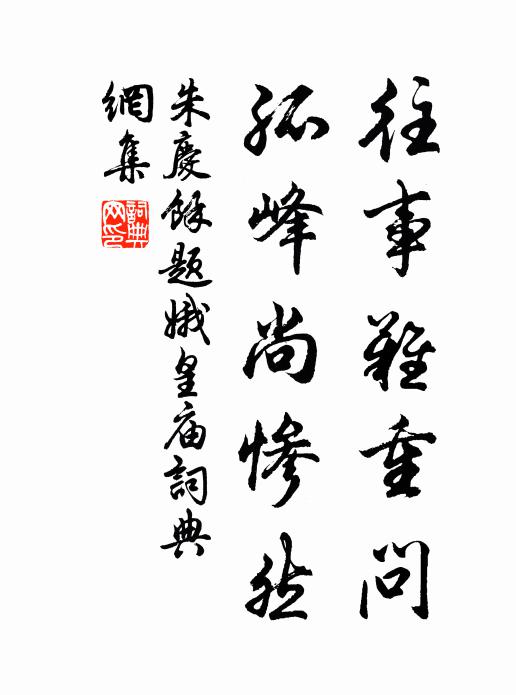 往事難重問
孤峰尚惨然
朱慶餘題娥皇庙詞典
網集
詞典
网印